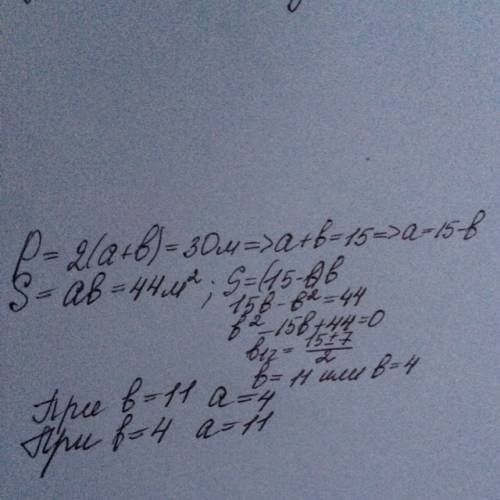 P = 2(a+b) = 30м => a+b = 15 => a = 15-b
S = ab = 44м²; S = (15-b)b
15b - b² = 44
b² - 15b + 44 = 0
b₁,₂ = (15±7)/2
b = 11 или b = 4
При b = 11 a = 4
При b = 4 a = 11